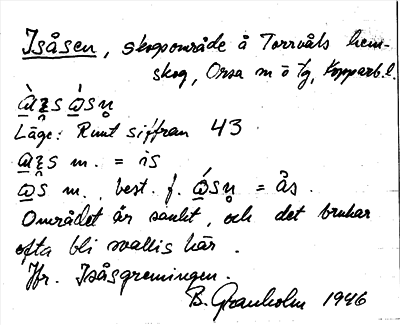 Isåsen, skogsområde å Torrvåls hem-
skog, Orsa m o tg, Kopparb. l.
Läge: Runt siffran 43
m. = is
m., best. f. = ås.
Området är sankt, och det brukar
ofta bli svallis här.
Jfr. Isåsgreningen.
B. Granholm 1946